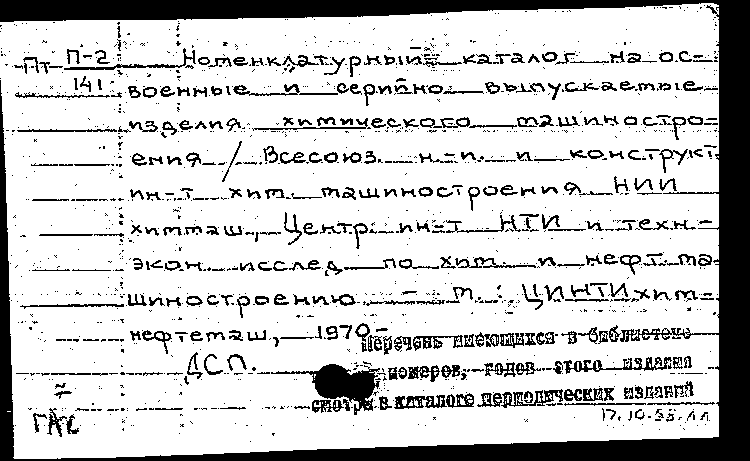 Пт П-2/141 Номенклатурный каталог на ос-
военные и серийно выпускаемые
изделия химического машиностро-
ения / Всесоюз. н.-и. и конструкт.
ин-т хим. машиностроения НИИ
химмаш, Центр. ин-т НТИ и техн.-
экон. исслед. по хим. и нефт. ма-
шиностроению. - М.: ЦИНТИхим-
нефтемаш, 1970-
ДСП.
Перечень имеющихся в библиотеке
номеров, годов этого издания
смотри в каталоге периодических изданий
ГАС